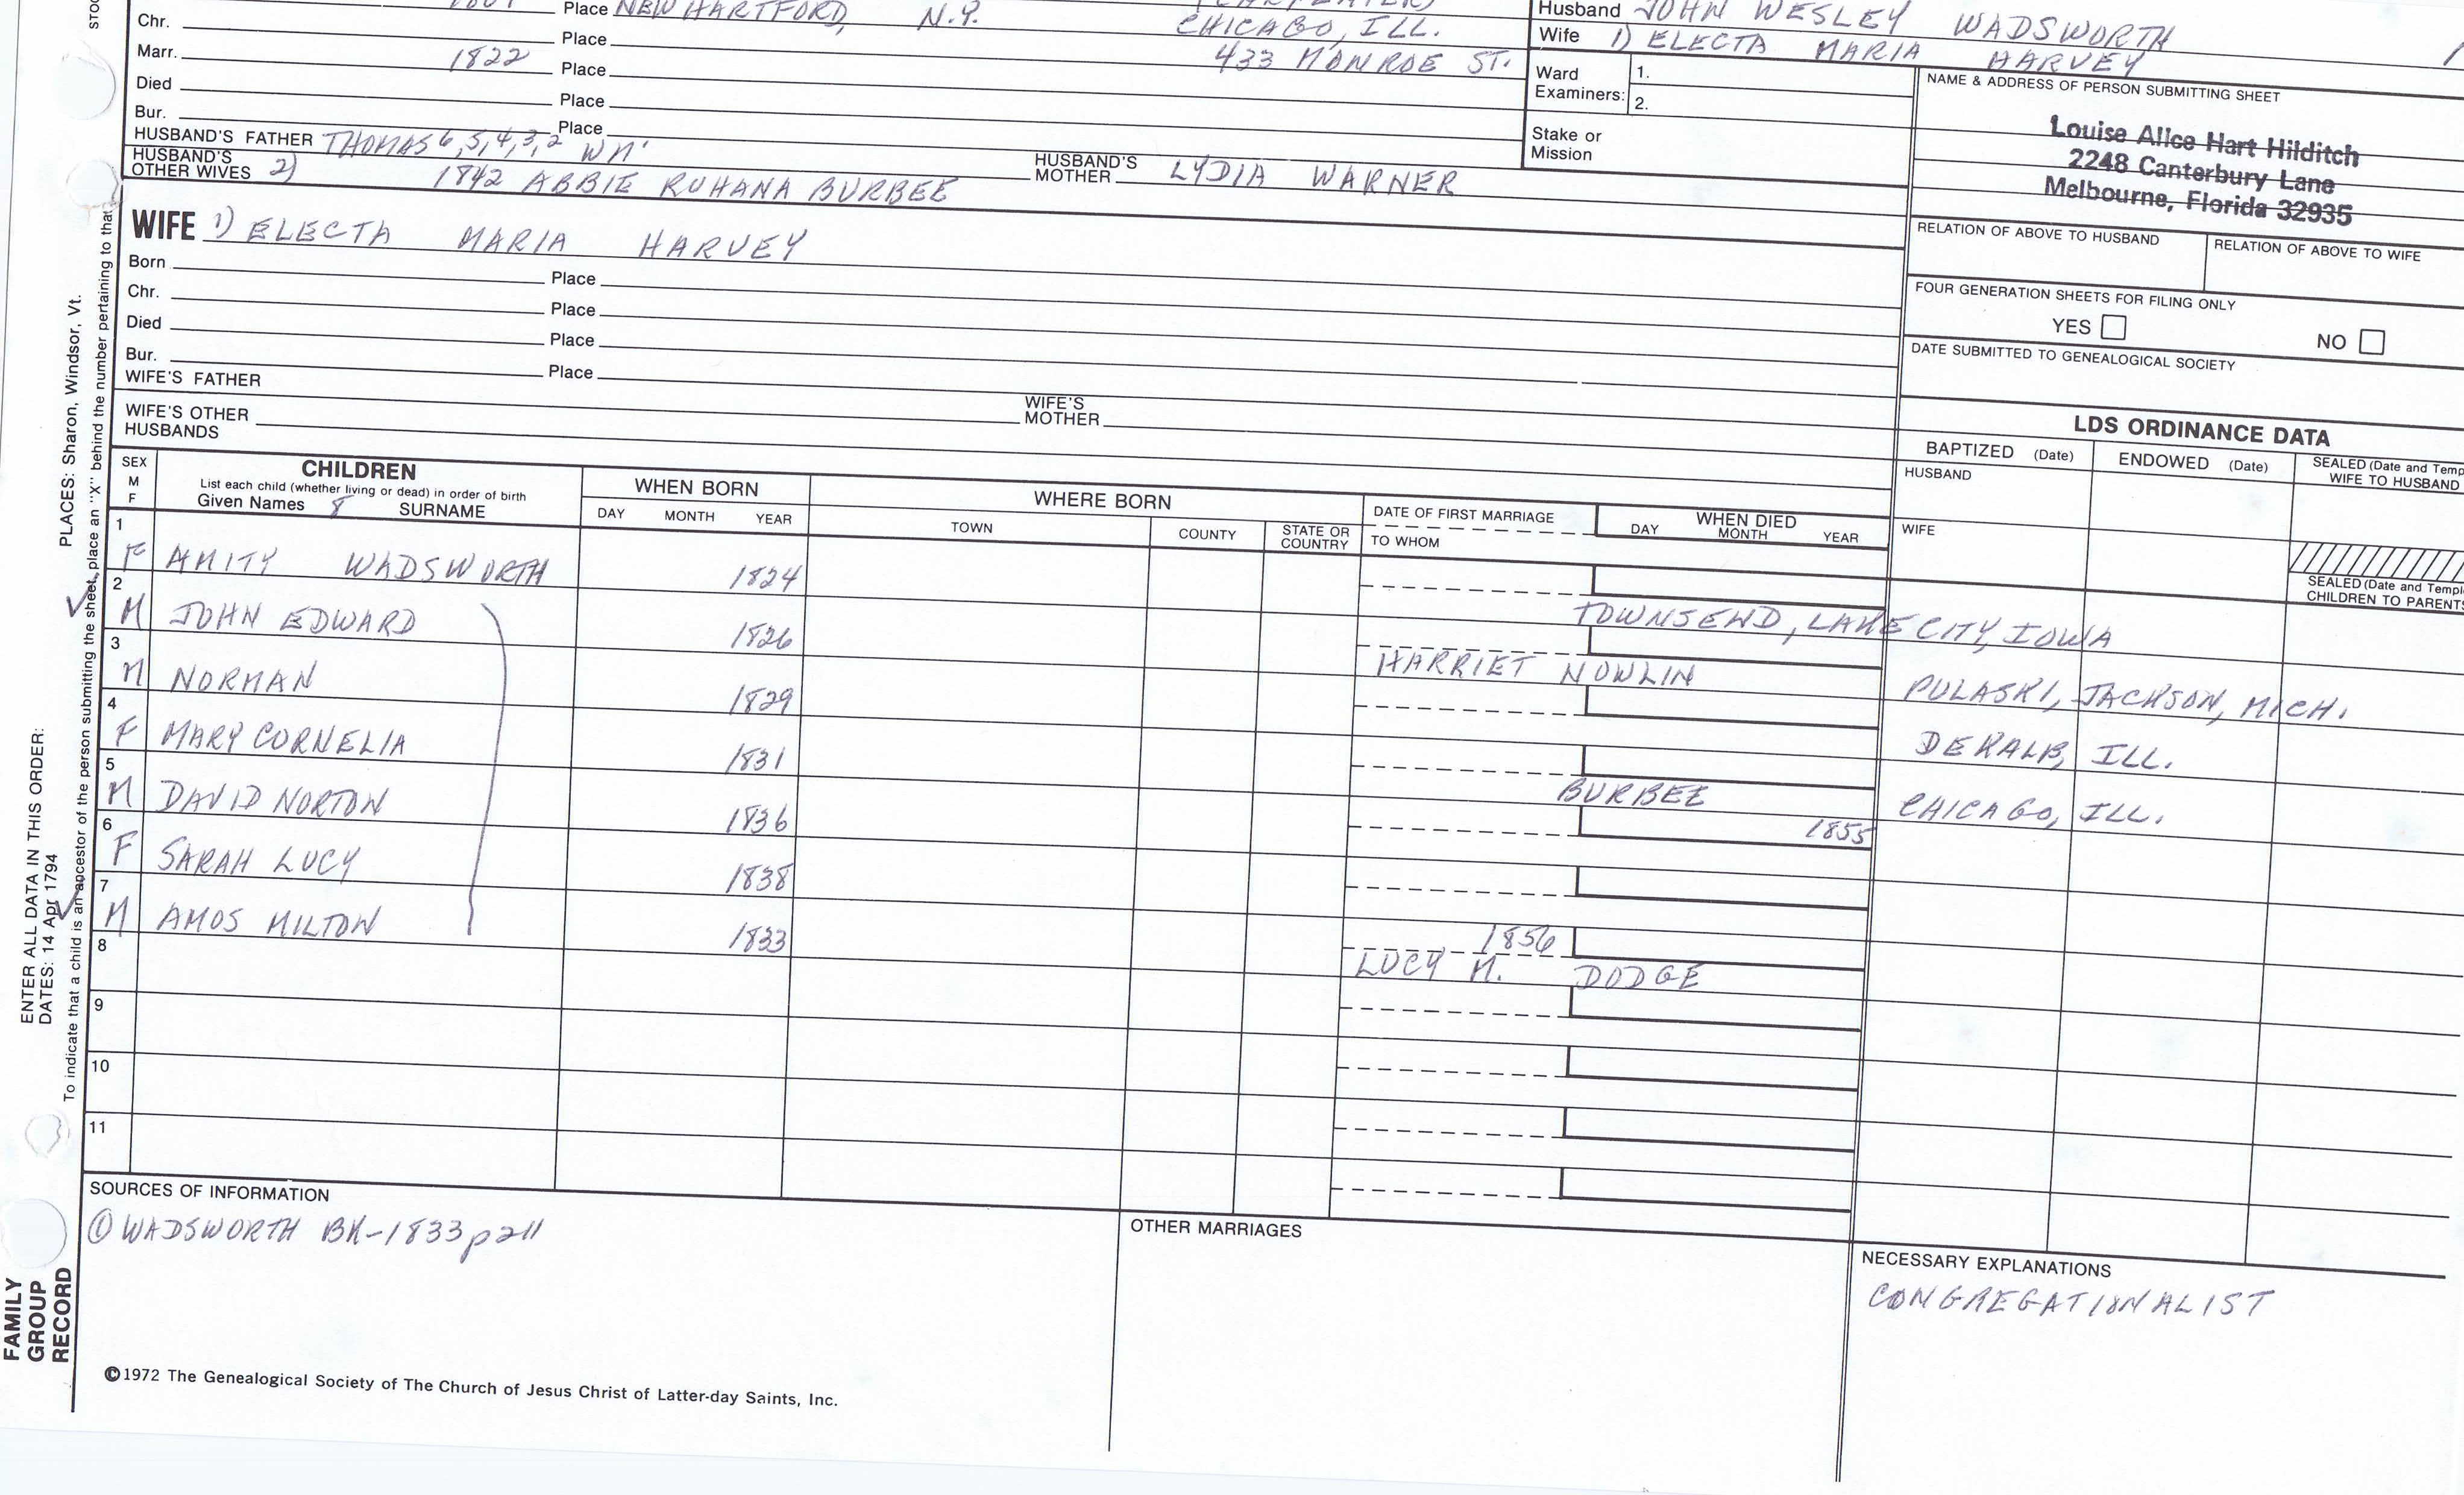 Place NEW HARTFORD, N.Y.
Chr. Place CHICAGO, ILL.
Marr. 1822 Place 433 MONROE ST.
Died Place
Bur. Place
HUSBAND'S FATHER THOMAS 6,5,4,3,2 WM'
HUSBAND'S MOTHER LYDIA WARNER
HUSBAND'S OTHER WIVES 2) 1842 ABBIE RUHANA BURBEE
Husband JOHN WESLEY WADSWORTH
Wife 1) ELECTA MARIA HARVEY
Ward Examiners: 1.
2.
Stake or Mission
NAME & ADDRESS OF PERSON SUBMITTING SHEET
Louise Alice Hart Hilditch
2248 Canterbury Lane
Melbourne, Florida 32935
RELATION OF ABOVE TO HUSBAND RELATION OF ABOVE TO WIFE
FOUR GENERATION SHEETS FOR FILING ONLY
YES NO
DATE SUBMITTED TO GENEALOGICAL SOCIETY
WIFE 1) ELECTA MARIA HARVEY
Born Place
Chr. Place
Died Place
Bur. Place
WIFE'S FATHER WIFE'S MOTHER
WIFE'S OTHER HUSBANDS
LDS ORDINANCE DATA
BAPTIZED (Date) ENDOWED (Date) SEALED (Date and Temp
WIFE TO HUSBAND
HUSBAND
WIFE
SEALED (Date and Templ
CHILDREN TO PARENTS
SEX M F CHILDREN
List each child (whether living or dead) in order of birth
Given Names 8 SURNAME
WHEN BORN
DAY MONTH YEAR
WHERE BORN
TOWN COUNTY STATE OR COUNTRY
DATE OF FIRST MARRIAGE
TO WHOM
WHEN DIED
DAY MONTH YEAR
1 F AMITY WADSWORTH 1824 TOWNSEND, LAKE CITY, IOWA
2 M JOHN EDWARD 1826 HARRIET NOWLIN PULASKI, JACKSON, MICH.
3 M NORMAN 1829 DEKALB, ILL.
4 F MARY CORNELIA 1831 BURBEE CHICAGO, ILL.
5 M DAVID NORTON 1836 1855
6 F SARAH LUCY 1838
7 M AMOS MILTON 1833 1856 LUCY M. DODGE
8
9
10
11
SOURCES OF INFORMATION
① WADSWORTH BK-1833 p211
OTHER MARRIAGES
NECESSARY EXPLANATIONS
CONGREGATIONALIST
©1972 The Genealogical Society of The Church of Jesus Christ of Latter-day Saints, Inc.
FAMILY GROUP RECORD
ENTER ALL DATA IN THIS ORDER:
DATES: 14 Apr 1794
PLACES: Sharon, Windsor, Vt.
To indicate that a child is an ancestor of the person submitting the sheet, place an "X" behind the number pertaining to that